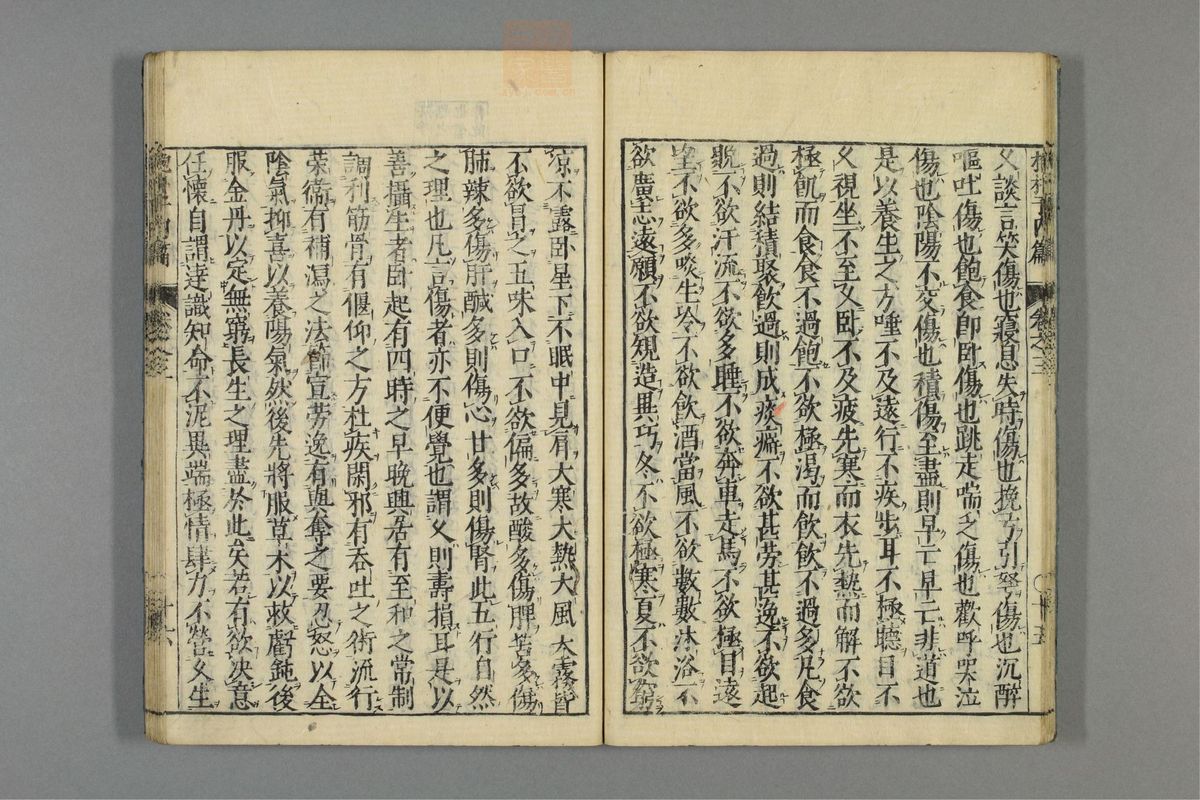 久談言笑傷也寢息失時傷也挽弓引弩傷也沉醉
嘔吐傷也飽食即卧傷也跳走喘乏傷也歡呼哭泣
傷也陰陽不交傷也積傷至盡則早亡早亡非道也
是以養生之方唾不及遠行不疾步耳不極聽目不
久視坐不至久卧不及疲先寒而衣先熱而解不欲
極飢而食食不過飽不欲極渴而飲飲不過多凡食
過則結積聚飲過則成痰癖不欲甚勞甚逸不欲起
晚不欲汗流不欲多睡不欲奔車走馬不欲極目遠
望不欲多啖生冷不欲飲酒當風不欲數數沐浴不
欲廣志遠願不欲規造異巧冬不欲極寒夏不欲窮
凉不露卧星下不眠中見肩大寒大熱大風大霧皆
不欲冒之五味入口不欲偏多故酸多傷脾苦多傷
肺辣多傷肝鹹多則傷心甘多則傷腎此五行自然
之理也凡言傷者亦不便覺也謂久則壽損耳是以
善攝生者卧起有四時之早晚興居有至和之常制
調利筋骨有偃仰之方杜疾閑邪有吞吐之術流行
榮衛有補瀉之法節宣勞逸有與奪之要忍怒以全
陰氣抑喜以養陽氣然後先將服草木以救虧鈍後
服金丹以定無窮長生之理盡於此矣若有欲决意
任懷自謂達識知命不泥異端極情肆力不營久生